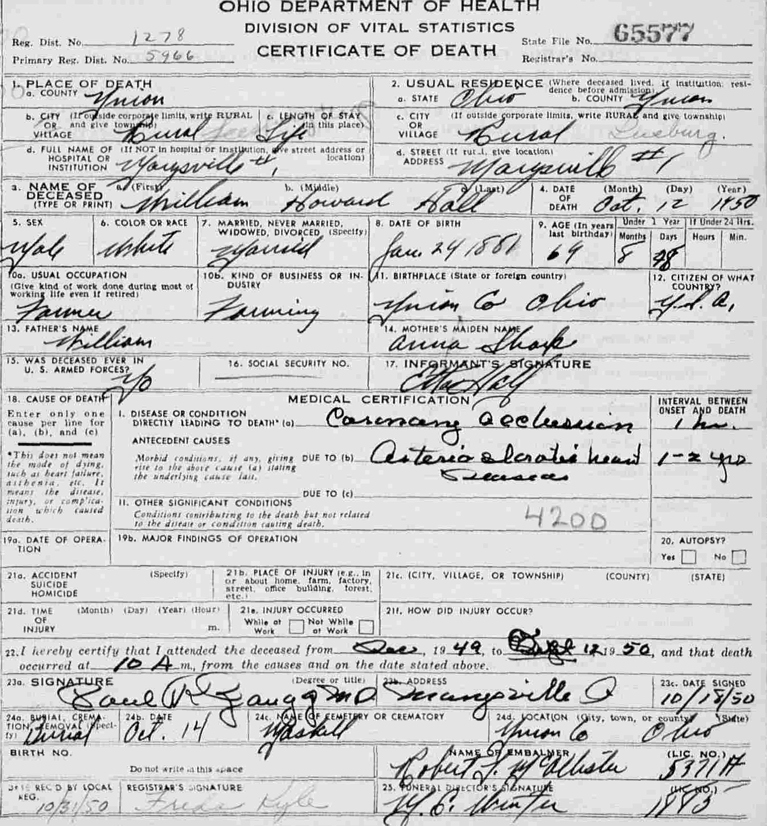 OHIO DEPARTMENT OF HEALTH
DIVISION OF VITAL STATISTICS
CERTIFICATE OF DEATH
Reg. Dist. No. 1278
Primary Reg. Dist. No. 5966
State File No. 65577
Registrar's No.
1. PLACE OF DEATH
a. COUNTY Union
b. CITY (If outside corporate limits, write RURAL and give township) OR VILLAGE Rural
c. LENGTH OF STAY (in this place) Life
d. FULL NAME OF (If NOT in hospital or institution, give street address or location) HOSPITAL OR INSTITUTION Marysville #1
2. USUAL RESIDENCE (Where deceased lived, if institution: residence before admission)
a. STATE Ohio b. COUNTY Union
c. CITY (If outside corporate limits, write RURAL and give township) OR VILLAGE Rural
d. STREET (If rural, give location) ADDRESS Marysville #1
3. NAME OF DECEASED (TYPE OR PRINT) a. (First) William b. (Middle) Howard c. (Last) Hall
4. DATE OF DEATH (Month) (Day) (Year) Oct. 12 1950
5. SEX Male
6. COLOR OR RACE White
7. MARRIED, NEVER MARRIED, WIDOWED, DIVORCED (Specify) Married
8. DATE OF BIRTH Jan. 24 1881
9. AGE (In years last birthday) 69 Under 1 Year Months 8 Days If Under 24 Hrs. Hours Min.
10a. USUAL OCCUPATION (Give kind of work done during most of working life even if retired) Farmer
10b. KIND OF BUSINESS OR INDUSTRY Farming
11. BIRTHPLACE (State or foreign country) Union Co Ohio
12. CITIZEN OF WHAT COUNTRY? U.S.A.
13. FATHER'S NAME William
14. MOTHER'S MAIDEN NAME Anna
15. WAS DECEASED EVER IN U. S. ARMED FORCES? No
16. SOCIAL SECURITY NO.
17. INFORMANT'S SIGNATURE Hall
18. CAUSE OF DEATH
Enter only one cause per line for (a), (b), and (c)
*This does not mean the mode of dying, such as heart failure, asthenia, etc. It means the disease, injury, or complication which caused death.
MEDICAL CERTIFICATION
INTERVAL BETWEEN ONSET AND DEATH
I. DISEASE OR CONDITION DIRECTLY LEADING TO DEATH* (a) Coronary occlussion 1 hr.
ANTECEDENT CAUSES
Morbid conditions, if any, giving rise to the above cause (a) stating the underlying cause last.
DUE TO (b) heart 1-2 yrs
DUE TO (c)
II. OTHER SIGNIFICANT CONDITIONS
Conditions contributing to the death but not related to the disease or condition causing death.
4200
19a. DATE OF OPERATION
19b. MAJOR FINDINGS OF OPERATION
20. AUTOPSY? Yes No
21a. ACCIDENT SUICIDE HOMICIDE (Specify)
21b. PLACE OF INJURY (e.g., in or about home, farm, factory, street, office building, forest, etc.)
21c. (CITY, VILLAGE, OR TOWNSHIP) (COUNTY) (STATE)
21d. TIME OF INJURY (Month) (Day) (Year) (Hour) m.
21e. INJURY OCCURRED While at Work Not While at Work
21f. HOW DID INJURY OCCUR?
22. I hereby certify that I attended the deceased from Dec, 1949, to 12 1950, and that death
occurred at 10 A m., from the causes and on the date stated above.
23a. SIGNATURE (Degree or title) Paul R Zaugg MD
23b. ADDRESS Marysville O
23c. DATE SIGNED 10/18/50
24a. BURIAL, CREMATION, REMOVAL (Specify) Burial
24b. DATE Oct. 14
24c. NAME OF CEMETERY OR CREMATORY Maskill
24d. LOCATION (City, town, or county) (State) Union Co Ohio
BIRTH NO.
Do not write in this space
NAME OF EMBALMER Robert L. McAllister (LIC. NO.) 5371A
DATE REC'D BY LOCAL REG. 10/31/50
REGISTRAR'S SIGNATURE Freda Kyle
25. FUNERAL DIRECTOR'S SIGNATURE Winter (LIC. NO.)